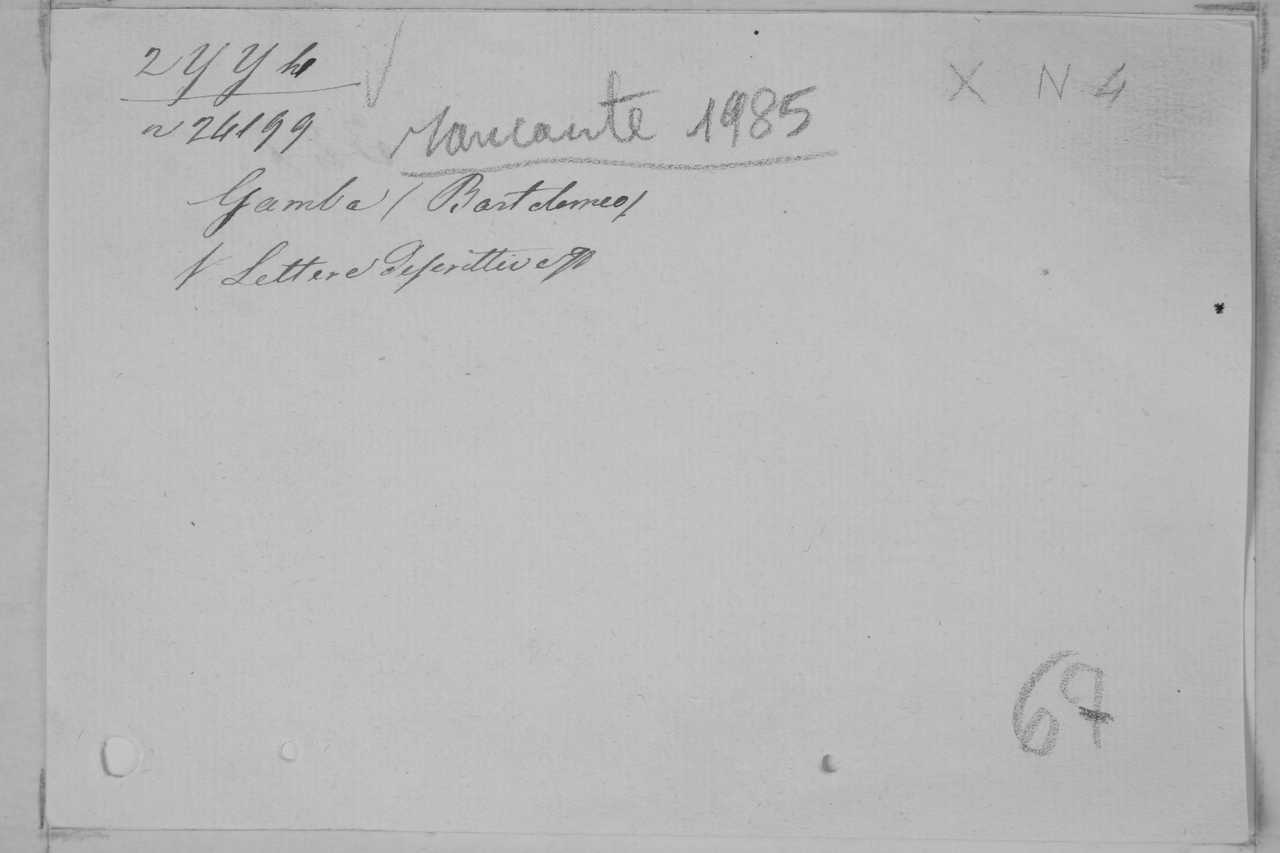 2 Y Y
X N 4
n 24199
Mancante 1985
Gamba (Bartolomeo)
V Lettere descrittive
67